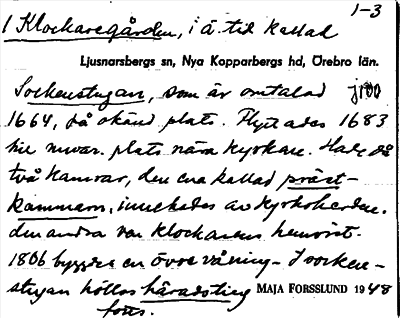 1-3
1 Klockaregården, i ä. tid kallad
Ljusnarsbergs sn, Nya Kopparbergs hd, Örebro län.
Sockenstugan, som är omtalad
1664, på okänd plats. Flyttades 1683
till nuvar. plats nära kyrkan. Hade då
två kamrar, den ena kallad präst-
kammarn, innehades av kyrkoherden.
den andra var klockarens hemvist.
1806 byggdes en övre våning. I socken-
stugan höllos häradsting
MAJA FORSSLUND 1948
forts.